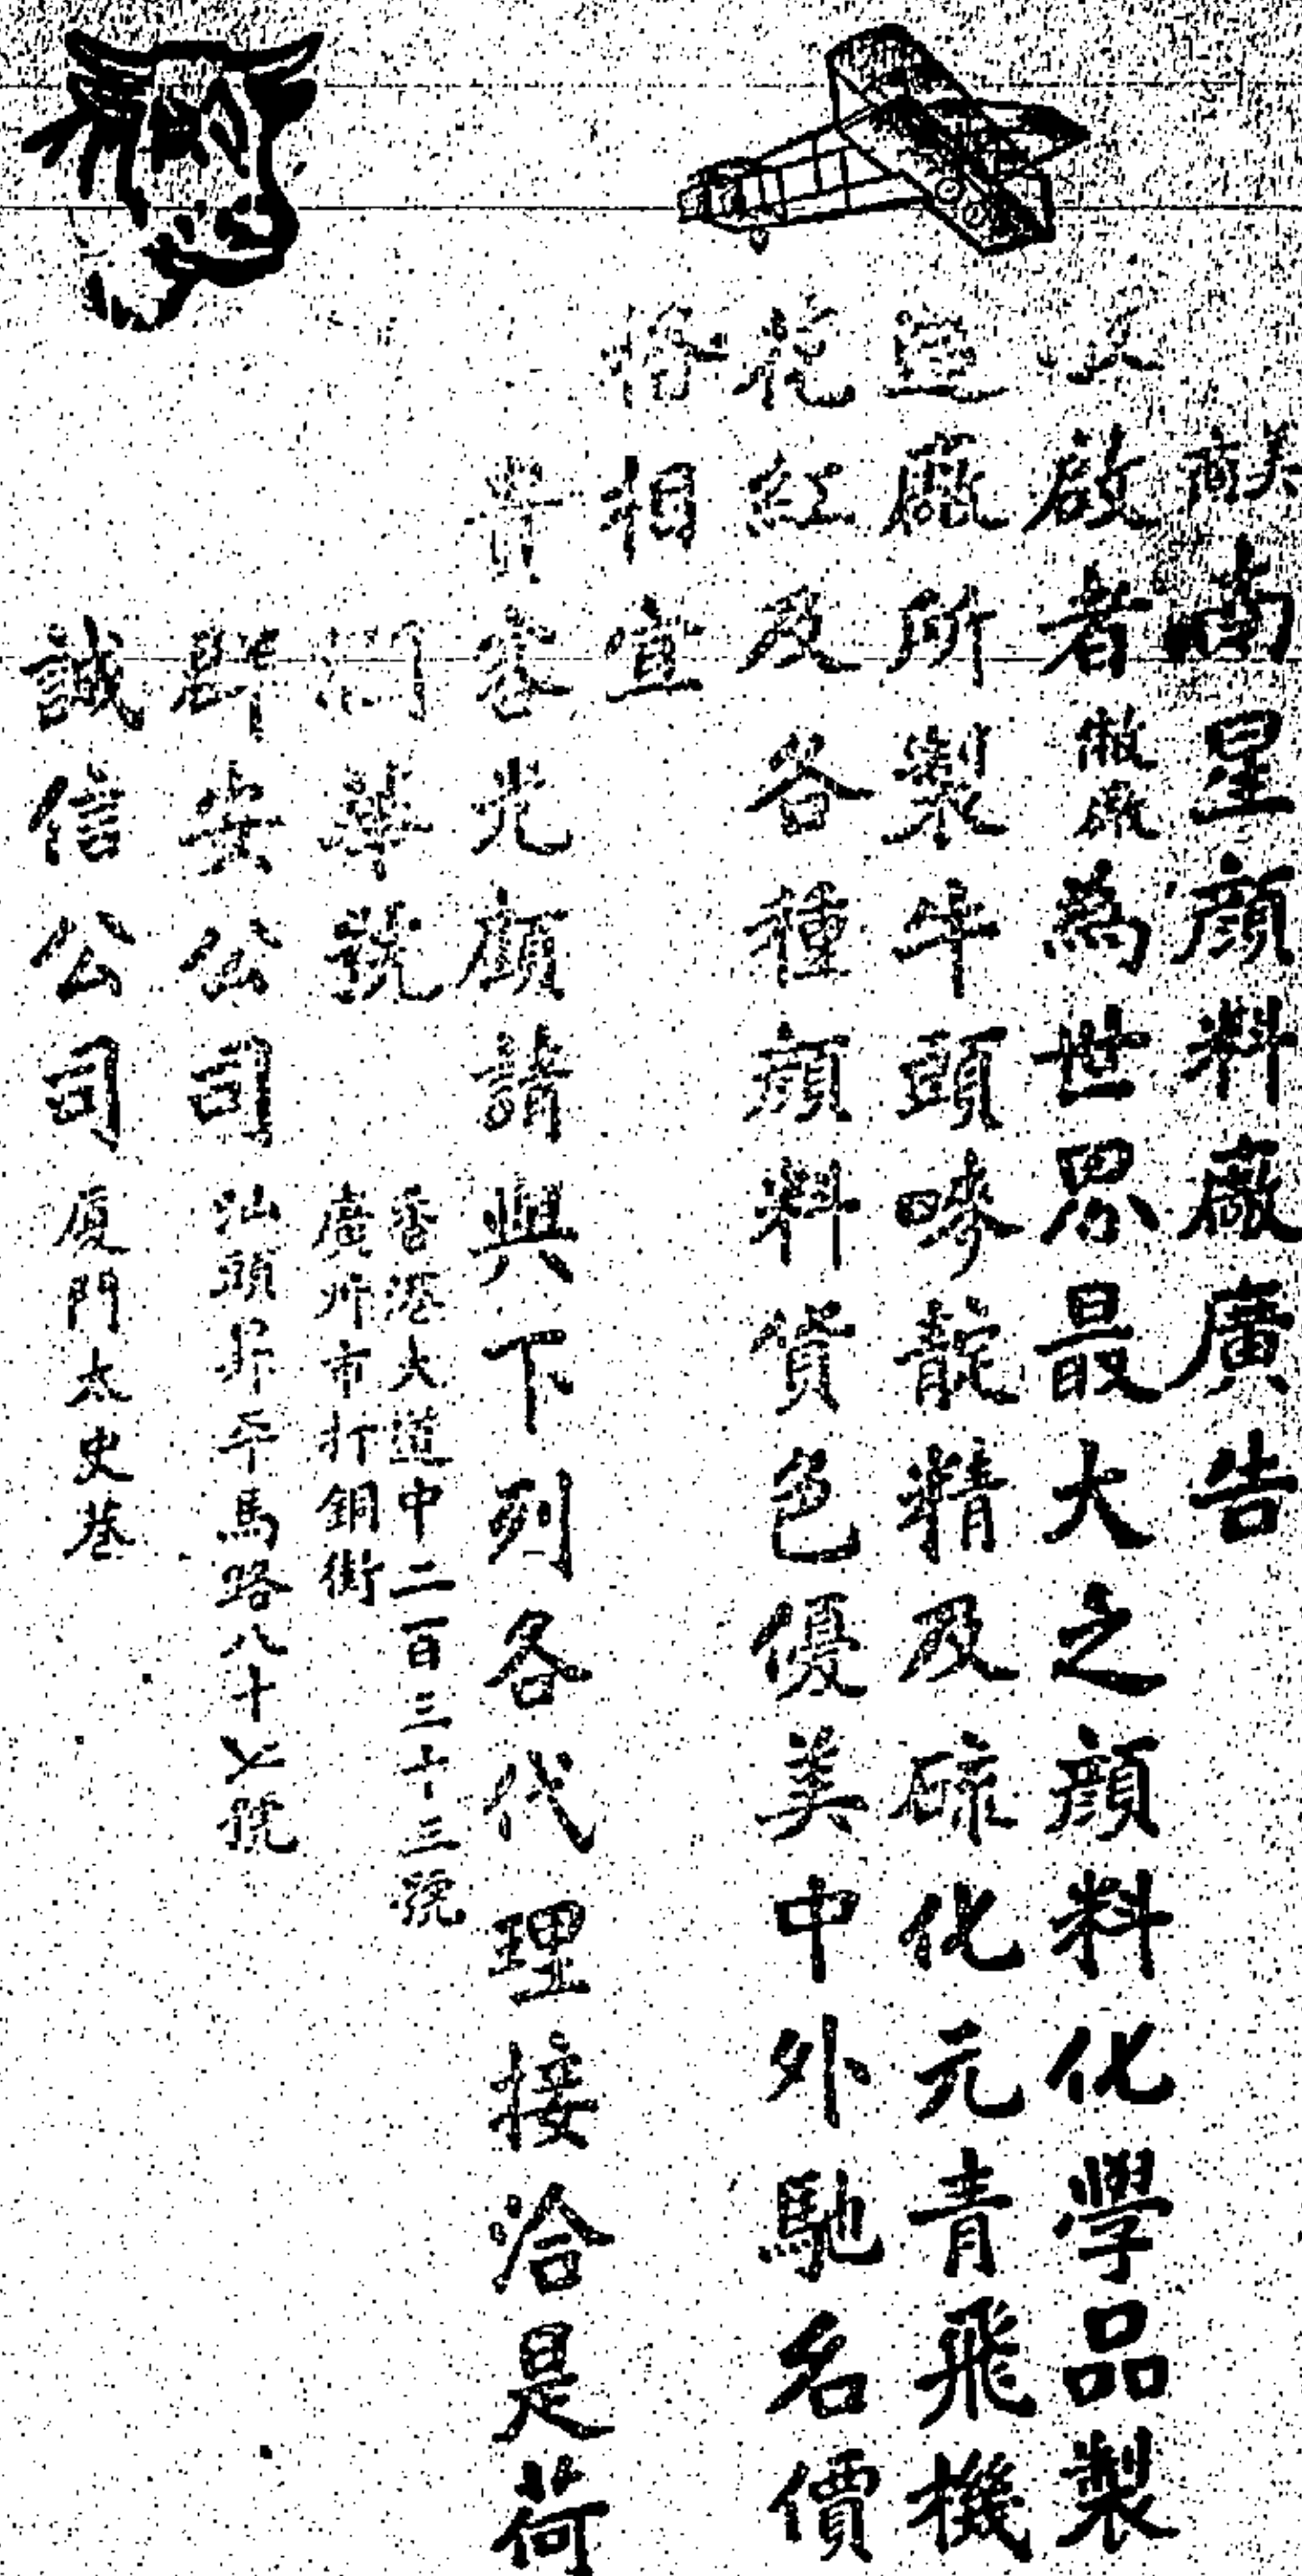 美商南星顏料廠廣告
啟者敝廠為世界最大之顏料化學品製
造廠所製牛頭嘜靛精及硫化元青飛機
花紅及各種顏料貨色優美中外馳名價
格相宜
貴客光顧請與下列各代理接洽是荷
香港大道中二百三十三號
華號
廣州市打銅街
群安公司 汕頭昇平馬路八十七號
誠信公司 廈門太史巷